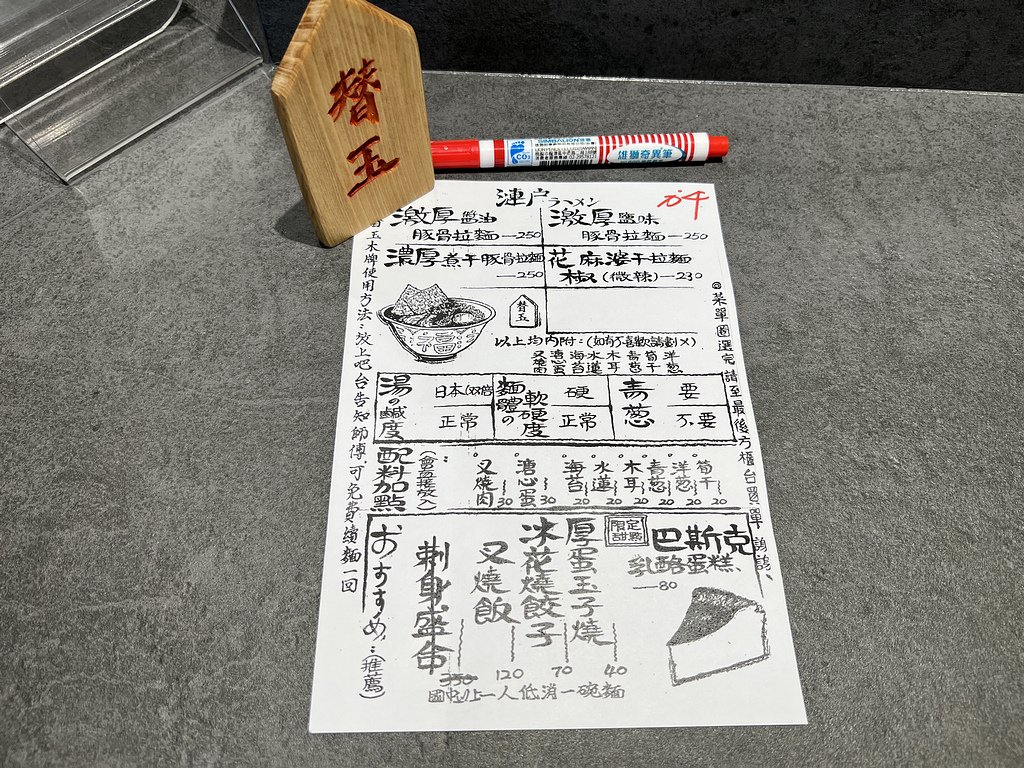 替玉
SIMBALION
CO2
雄獅奇異筆
漣戶ラーメン
激厚醬油
豚骨拉麵—250
激厚鹽味
豚骨拉麵—250
濃厚煮干豚骨拉麵
—250
花椒麻婆干拉麵
(微辣)—230
替玉
以上均內附:(如有不喜歡請劃×)
叉燒肉 溏心蛋 海苔 水蓮 木耳 青蔥 筍干 洋蔥
湯の鹹度
日本(双倍)
正常
麵體の軟硬度
硬
正常
青蔥
要
不要
配料加點
(會直接放入):
叉燒肉 30
溏心蛋 30
海苔 20
水蓮 20
木耳 20
青蔥 20
洋蔥 20
筍干 20
おすすめ:(推薦)
刺身盛合 350
叉燒飯 120
冰花燒餃子 70
厚蛋玉子燒 40
限定甜點
巴斯克
乳酪蛋糕
—80
國中以上一人低消一碗麵
替玉木牌使用方法:放上吧台告知師傅,可免費續麵一回
◎菜單圈選完請至最後方櫃台買單謝謝、